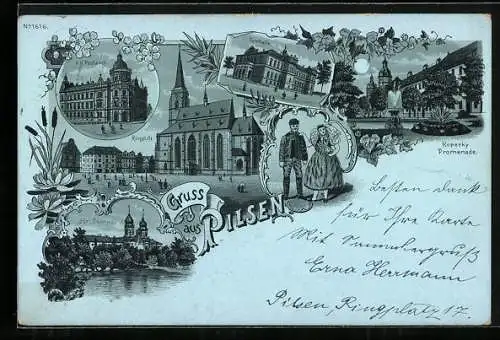 No 1676.
Ringplatz
Kopecky
Promenade.
Gruss
aus PILSEN
Besten Dank
für Ihre Karte
Mit Sammlergruß
Erna Herrmann
Pilsen, Ringplatz 17.